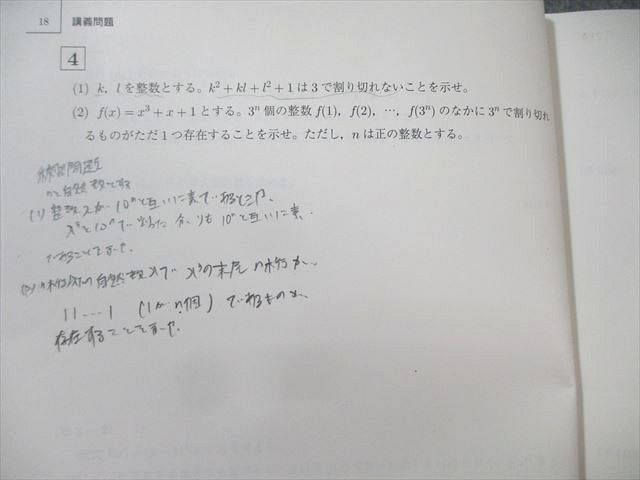 18 講義問題
4
(1) k, l を整数とする。k² + kl + l² + 1 は 3 で割り切れないことを示せ。
(2) f(x) = x³ + x + 1 とする。3ⁿ 個の整数 f(1), f(2), ⋯, f(3ⁿ) のなかに 3ⁿ で割り切れ
るものがただ 1 つ存在することを示せ。ただし, n は正の整数とする。
練習問題
nを自然数とする
(1) 整数xが 10ⁿと互いに素であるとき,
x³を10ⁿで割った余りも 10ⁿと互いに素
であることを示せ.
(2) n桁以下の自然数xで x³の末尾n桁が,
11…1 (1がn個) であるものが,
存在することを示せ.